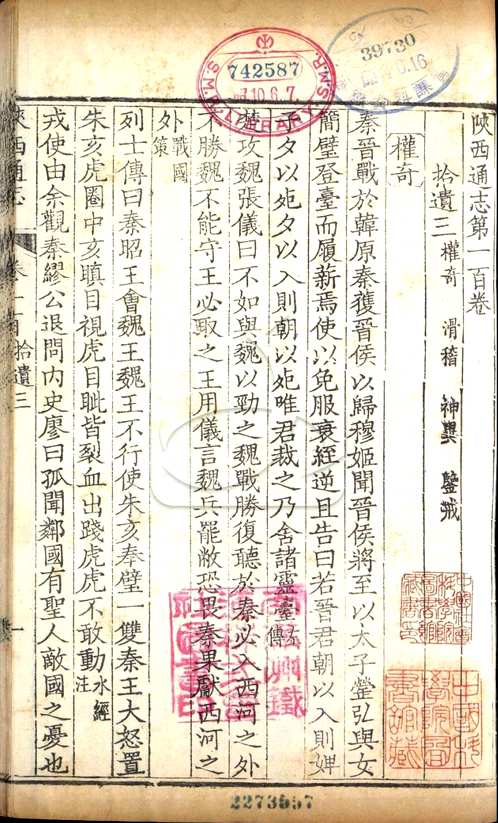 陝西通志第一百卷
拾遺三 權奇 滑稽 神異 鑒戒
權奇
秦晉戰於韓原秦獲晉侯以歸穆姬聞晉侯將至以太子罃弘與女
簡璧登臺而履薪焉使以免服衰絰逆且告曰若晉君朝以入則婢
子夕以死夕以入則朝以死唯君裁之乃舍諸靈臺左傳
攻魏張儀曰不如與魏以勁之魏戰勝復聽於秦必入西河之外
不勝魏不能守王必取之王用儀言魏兵罷敝恐畏秦果獻西河之
外戰國策
列士傳曰秦昭王會魏王魏王不行使朱亥奉璧一雙秦王大怒置
朱亥虎圈中亥瞋目視虎目眦皆裂血出踐虎虎不敢動水經注
戎使由余觀秦繆公退問內史廖曰孤聞鄰國有聖人敵國之憂也
陝西通志
拾遺三
一
742587
10.6.7
S.M.R. LIBRARY
39730
2273657